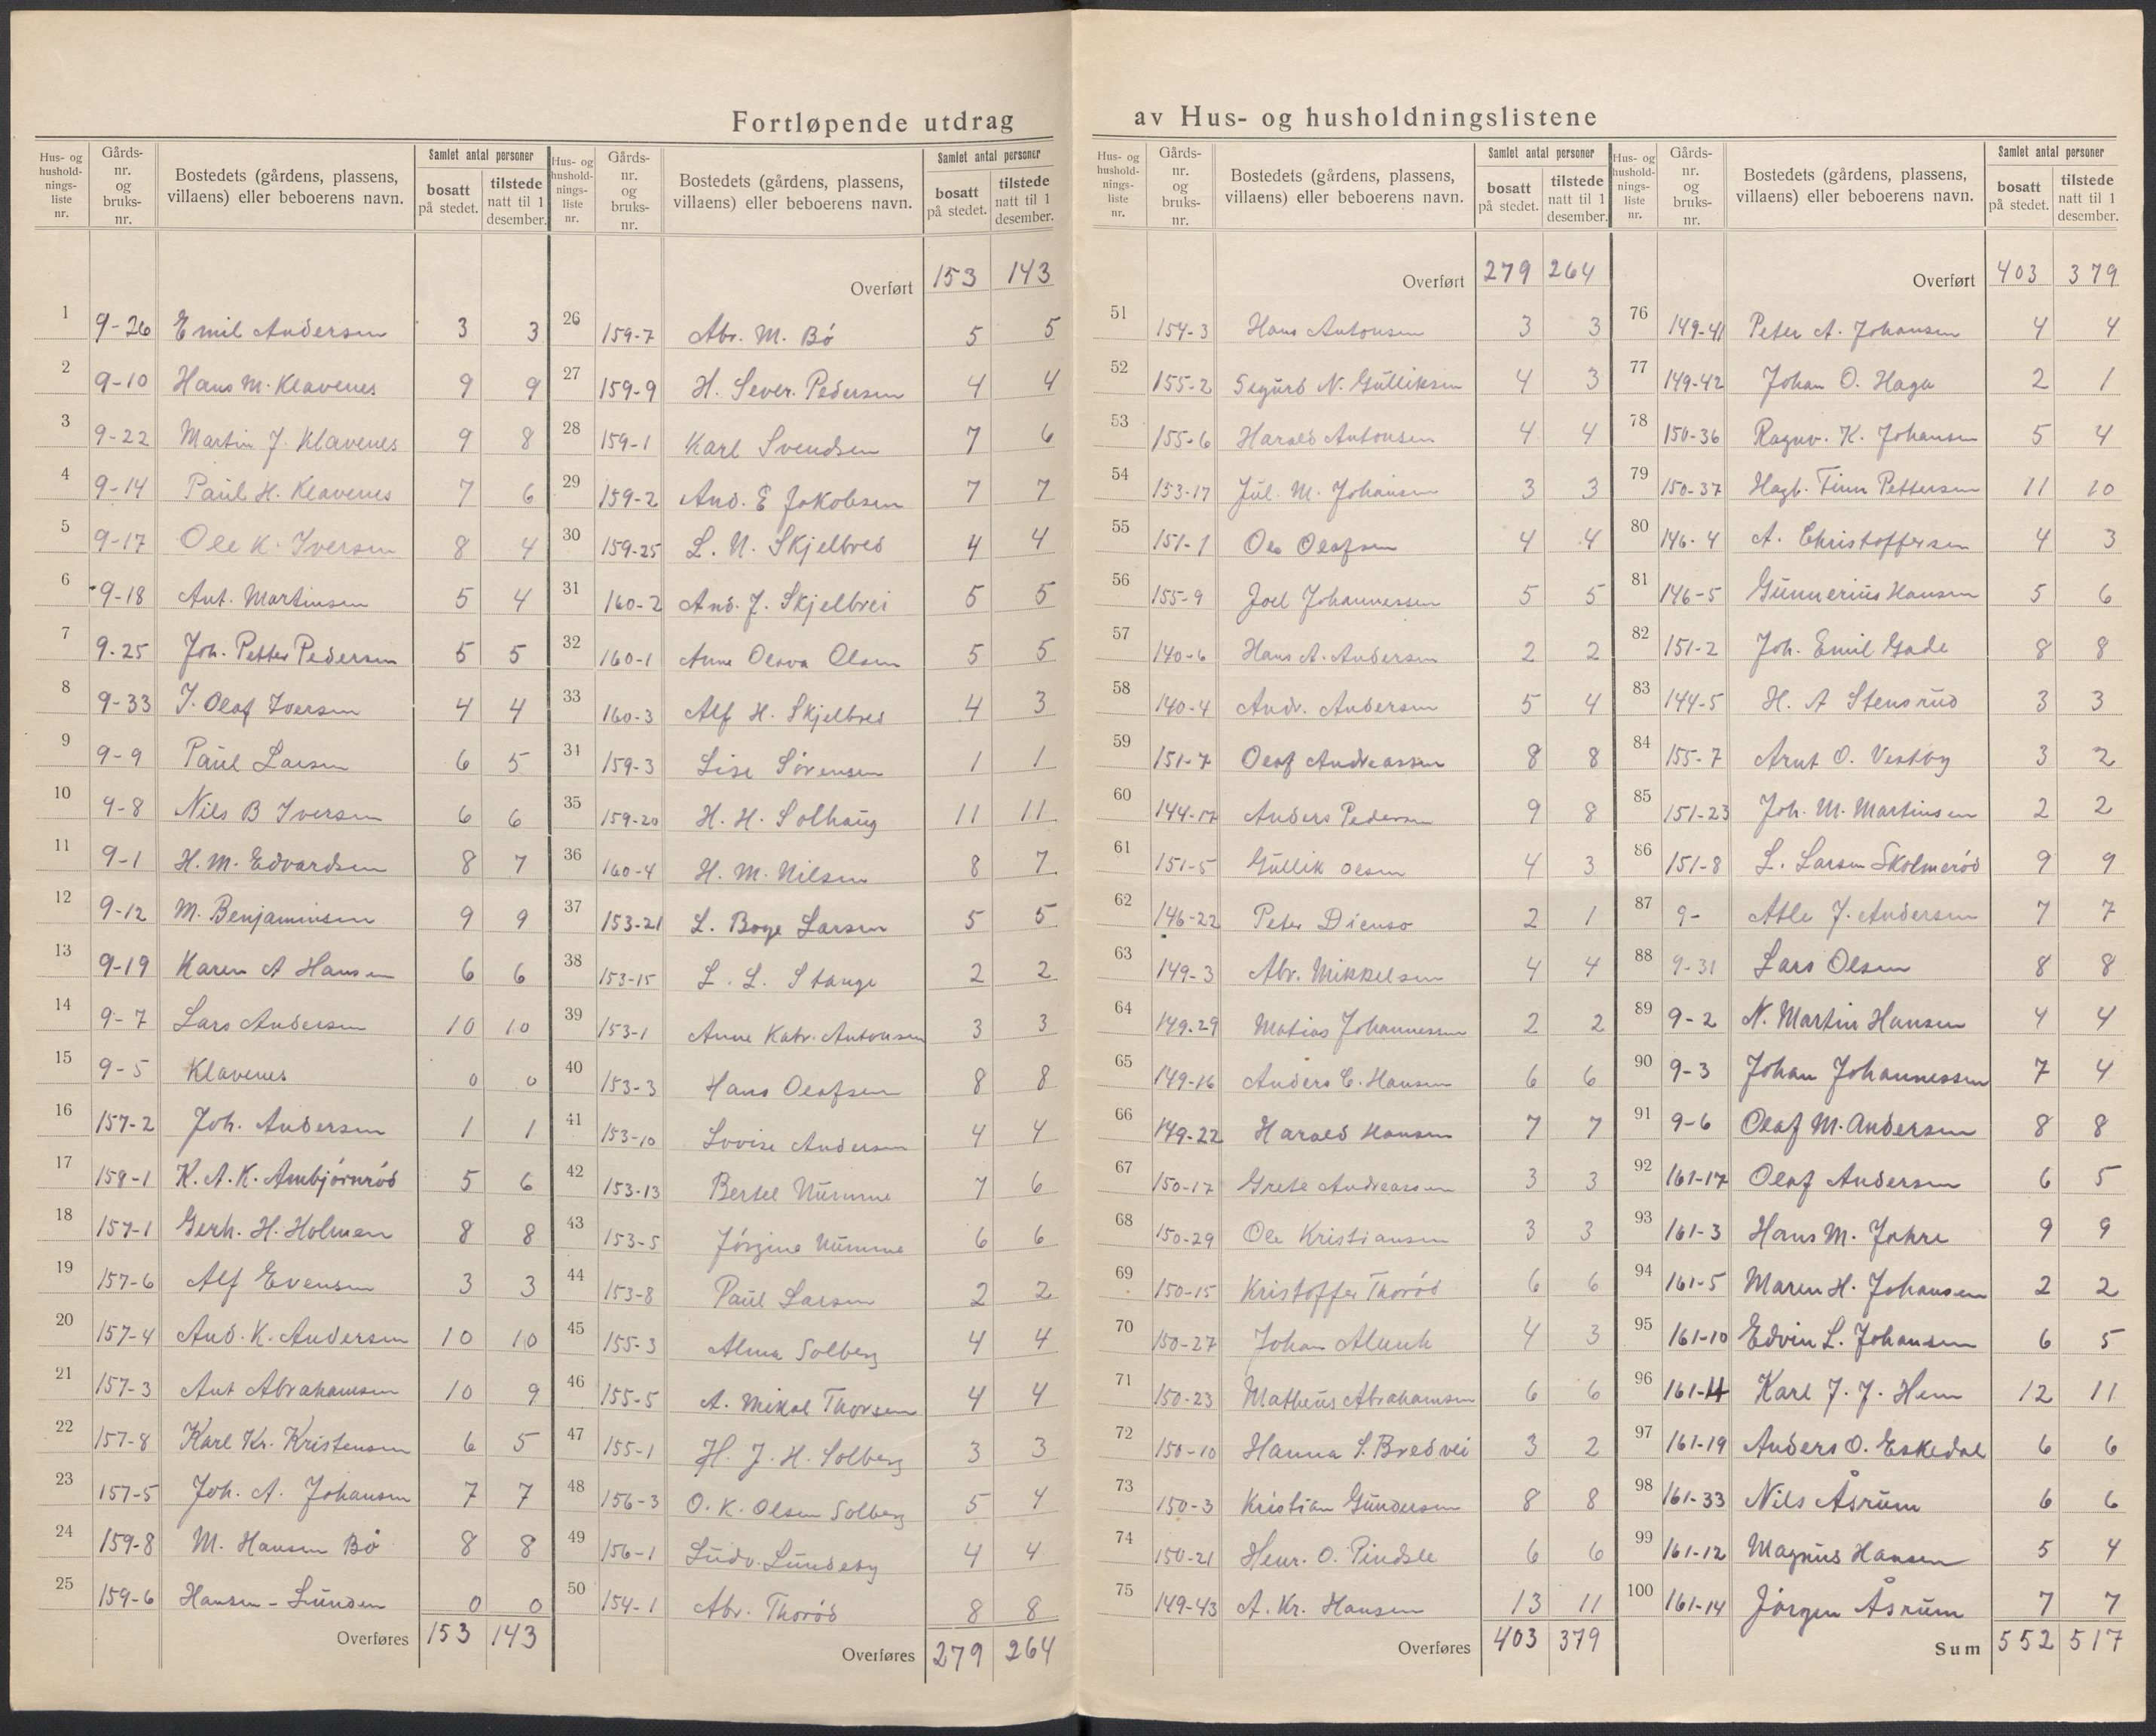 Fortløpende utdrag av Hus- og husholdningslistene
Hus- og hushold-nings-liste nr. Gårds-nr. og bruks-nr. Bostedets (gårdens, plassens, villaens) eller beboerens navn. Samlet antal personer bosatt på stedet. tilstede natt til 1 desember.
1 9-26 Emil Andersen 3 3
2 9-10 Hans M. Klavenes 9 9
3 9-22 Martin J. Klavenes 9 8
4 9-14 Paul H. Klavenes 7 6
5 9-17 Ole K. Iversen 8 4
6 9-18 Ant. Martinsen 5 4
7 9-25 Joh. Petter Pedersen 5 5
8 9-33 I. Olaf Iversen 4 4
9 9-9 Paul Larsen 6 5
10 9-8 Nils B Iversen 6 6
11 9-1 H. M. Edvardsen 8 7
12 9-12 M. Benjaminsen 9 9
13 9-19 Karen A Hansen 6 6
14 9-7 Lars Andersen 10 10
15 9-5 Klavenes 0 0
16 157-2 Joh. Andersen 1 1
17 158-1 K. A. K. Ambjørnrød 5 6
18 157-1 Gerh. H. Holman 8 8
19 157-6 Alf Evensen 3 3
20 157-4 And. K. Andersen 10 10
21 157-3 Ant Abrahamsen 10 9
22 157-8 Karl Kr. Kristensen 6 5
23 157-5 Joh. A. Johansen 7 7
24 159-8 M. Hansen Bø 8 8
25 159-6 Hansen - Lunden 0 0
Overføres 153 143
Hus- og hushold-nings-liste nr. Gårds-nr. og bruks-nr. Bostedets (gårdens, plassens, villaens) eller beboerens navn. Samlet antal personer bosatt på stedet. tilstede natt til 1 desember.
Overført 153 143
26 159-7 Abr. M. Bø 5 5
27 159-9 H. Sever. Pedersen 4 4
28 159-1 Karl Svendsen 7 6
29 159-2 And. E Jakobsen 7 7
30 159-25 L. N. Skjelbred 4 4
31 160-2 And. J. Skjelbrei 5 5
32 160-1 Anne Olava Olsen 5 5
33 160-3 Alf H. Skjelbred 4 3
34 159-3 Lise Sørensen 1 1
35 159-20 H. H. Solhaug 11 11
36 160-4 H. M. Nilsen 8 7
37 153-21 L. Boye Larsen 5 5
38 153-15 L. L. Stange 2 2
39 153-1 Anne Katr. Antonsen 3 3
40 153-3 Hans Olafsen 8 8
41 153-10 Lovise Andersen 4 4
42 153-13 Bertel Numme 7 6
43 153-5 Jørgine Numme 6 6
44 153-8 Paul Larsen 2 2
45 155-3 Alma Solberg 4 4
46 155-5 A. Mikal Thorsen 4 4
47 155-1 H. J. H. Solberg 3 3
48 156-3 O. K. Olsen Solberg 5 4
49 156-1 Ludv. Lundeby 4 4
50 154-1 Abr. Thorød 8 8
Overføres 279 264
Hus- og hushold-nings-liste nr. Gårds-nr. og bruks-nr. Bostedets (gårdens, plassens, villaens) eller beboerens navn. Samlet antal personer bosatt på stedet. tilstede natt til 1 desember.
Overført 279 264
51 154-3 Hans Antonsen 3 3
52 155-2 Sigurd N. Gulliksen 4 3
53 155-6 Harald Antonsen 4 4
54 153-17 Jul. M. Johansen 3 3
55 151-1 Ole Olafsen 4 4
56 155-9 Joel Johannessen 5 5
57 140-6 Hans A. Andersen 2 2
58 140-4 Andr. Andersen 5 4
59 151-7 Olaf Andreassen 8 8
60 144-17 Anders Pedersen 9 8
61 151-5 Gullik Olsen 4 3
62 146-22 Peter Dienso 2 1
63 149-3 Abr. Mikkelsen 4 4
64 149-29 Matias Johannessen 2 2
65 149-16 Anders C. Hansen 6 6
66 149-22 Harald Hansen 7 7
67 150-17 Grete Andreassen 3 3
68 150-29 Ole Kristiansen 3 3
69 150-15 Kristoffer Thorød 6 6
70 150-27 Johan 4 3
71 150-23 Matheus Abrahamsen 6 6
72 150-10 Hanna S. Bredvei 3 2
73 150-3 Kristian Gundersen 8 8
74 150-21 Henr. O. Pindsle 6 6
75 149-43 A. Kr. Hansen 13 11
Overføres 403 379
Hus- og hushold-nings-liste nr. Gårds-nr. og bruks-nr. Bostedets (gårdens, plassens, villaens) eller beboerens navn. Samlet antal personer bosatt på stedet. tilstede natt til 1 desember.
Overført 403 379
76 149-41 Peter A. Johansen 4 4
77 149-42 Johan O. Haga 2 1
78 150-36 Ragnv. K. Johansen 5 4
79 150-37 Hagb. Finn Pettersen 11 10
80 146-4 A. Christoffersen 4 3
81 146-5 Gunnerius Hansen 5 6
82 151-2 Joh. Emil Gade 8 8
83 144-5 H. A Stensrud 3 3
84 155-7 Arnt O. Vestby 3 2
85 151-23 Joh. M. Martinsen 2 2
86 151-8 L. Larsen Skolmerød 9 9
87 9- Atle J. Andersen 7 7
88 9-31 Lars Olsen 8 8
89 9-2 N. Martin Hansen 4 4
90 9-3 Johan Johannessen 7 4
91 9-6 Olaf M. Andersen 8 8
92 161-17 Olaf Andersen 6 5
93 161-3 Hans M. Jahre 9 9
94 161-5 Maren H. Johansen 2 2
95 161-10 Edvin L. Johansen 6 5
96 161-4 Karl J. J. Hem 12 11
97 161-19 Anders O. Eskedal 6 6
98 161-33 Nils Åsrum 6 6
99 161-12 Magnus Hansen 5 4
100 161-14 Jørgen Åsrum 7 7
Sum 552 517